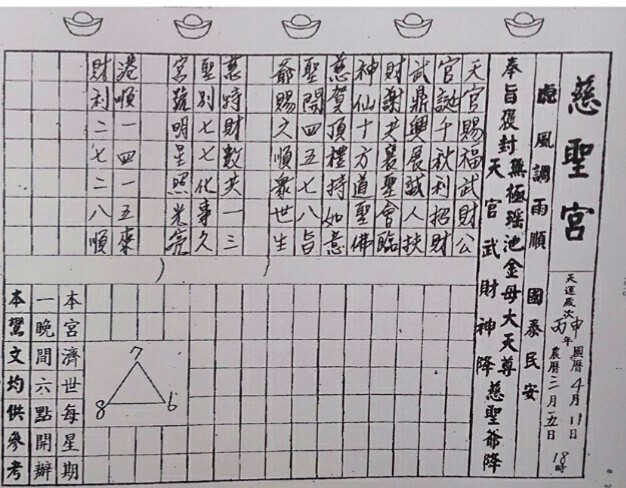 慈聖宮
天運歲次丙申年 國曆4月11日 18時
農曆三月五日
風調雨順 國泰民安
奉旨褒封 無極瑤池金母大天尊 慈聖爺降
天官武財神降
天官賜福武財公
官誕千秋利招財
武鼎興展誠人扶
財謝共襄聖會臨
神仙十方道聖佛
慈賀頂禮持如意
聖開四五七八旨
爺賜六順眾世生
慈時財數共一三
聖別七七化事久
宮號明星照光亮
港順一四一五來
財利二七二八順
7
8 6
本宮濟世每星期
一晚間六點開辦
本鸞文均供參考